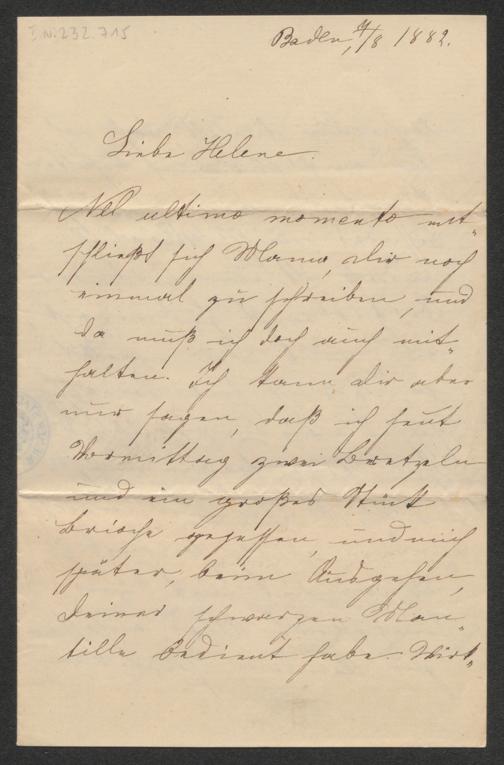 I.N. 232.715
Baden, 9/8 1882.
Liebe Helene.
Nel ultimo momento ent„
schließt sich Mama, dir noch
einmal zu schreiben, und
da muß ich doch auch mit„
halten. Ich kann dir aber
nur sagen, daß ich heut
Vormittag zwei Bretzeln
und ein großes Stück
Brioche gegessen, und mich
später, beim Ausgehen,
Deiner schwarzen Man„
tille bedient habe. Wirk„